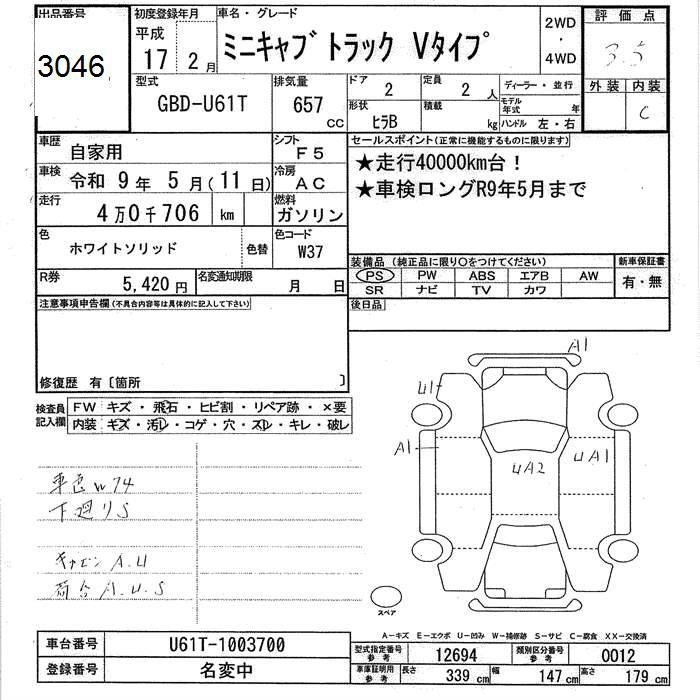 出品番号
3046
初度登録年月
平成
17 2月
車名・グレード
ミニキャブ トラック Vタイプ
2WD
・
4WD
評価点
3.5
外装 内装
C
型式
GBD-U61T
排気量
657
CC
ドア
2
定員
2 人
ディーラー・並行
モデル年式 年
形状
ヒラB
積載
kg
ハンドル 左・右
車歴
自家用
シフト
F5
車検
令和 9年 5月(11日)
冷房
AC
走行
4万0千706 km
燃料
ガソリン
色
ホワイトソリッド
色替
色コード
W37
R券
5,420円
名変通知期限
月 日
セールスポイント(正常に機能するものに限ります)
★走行40000km台!
★車検ロングR9年5月まで
装備品(純正品に限り○をつけてください)
PS PW ABS エアB AW
SR ナビ TV カワ
新車保証書
有・無
後日品
注意事項申告欄(不具合内容等は具体的に記入して下さい)
修復歴 有〔箇所 〕
検査員記入欄
FW キズ・飛石・ヒビ割・リペア跡・×要
内装 キズ・汚レ・コゲ・穴・スレ・キレ・破レ
車色W74
下廻りS
キャビンA.U
荷台A.U.S
A1
U1
A1
UA2
UA1
スペア
A-キズ E-エクボ U-凹み W-補修跡 S-サビ C-腐食 XX-交換済
車台番号
U61T-1003700
登録番号
名変中
型式指定番号
参考
12694
類別区分番号
参考
0012
車庫証明用
参考
長さ 339 cm 幅 147 cm 高さ 179 cm